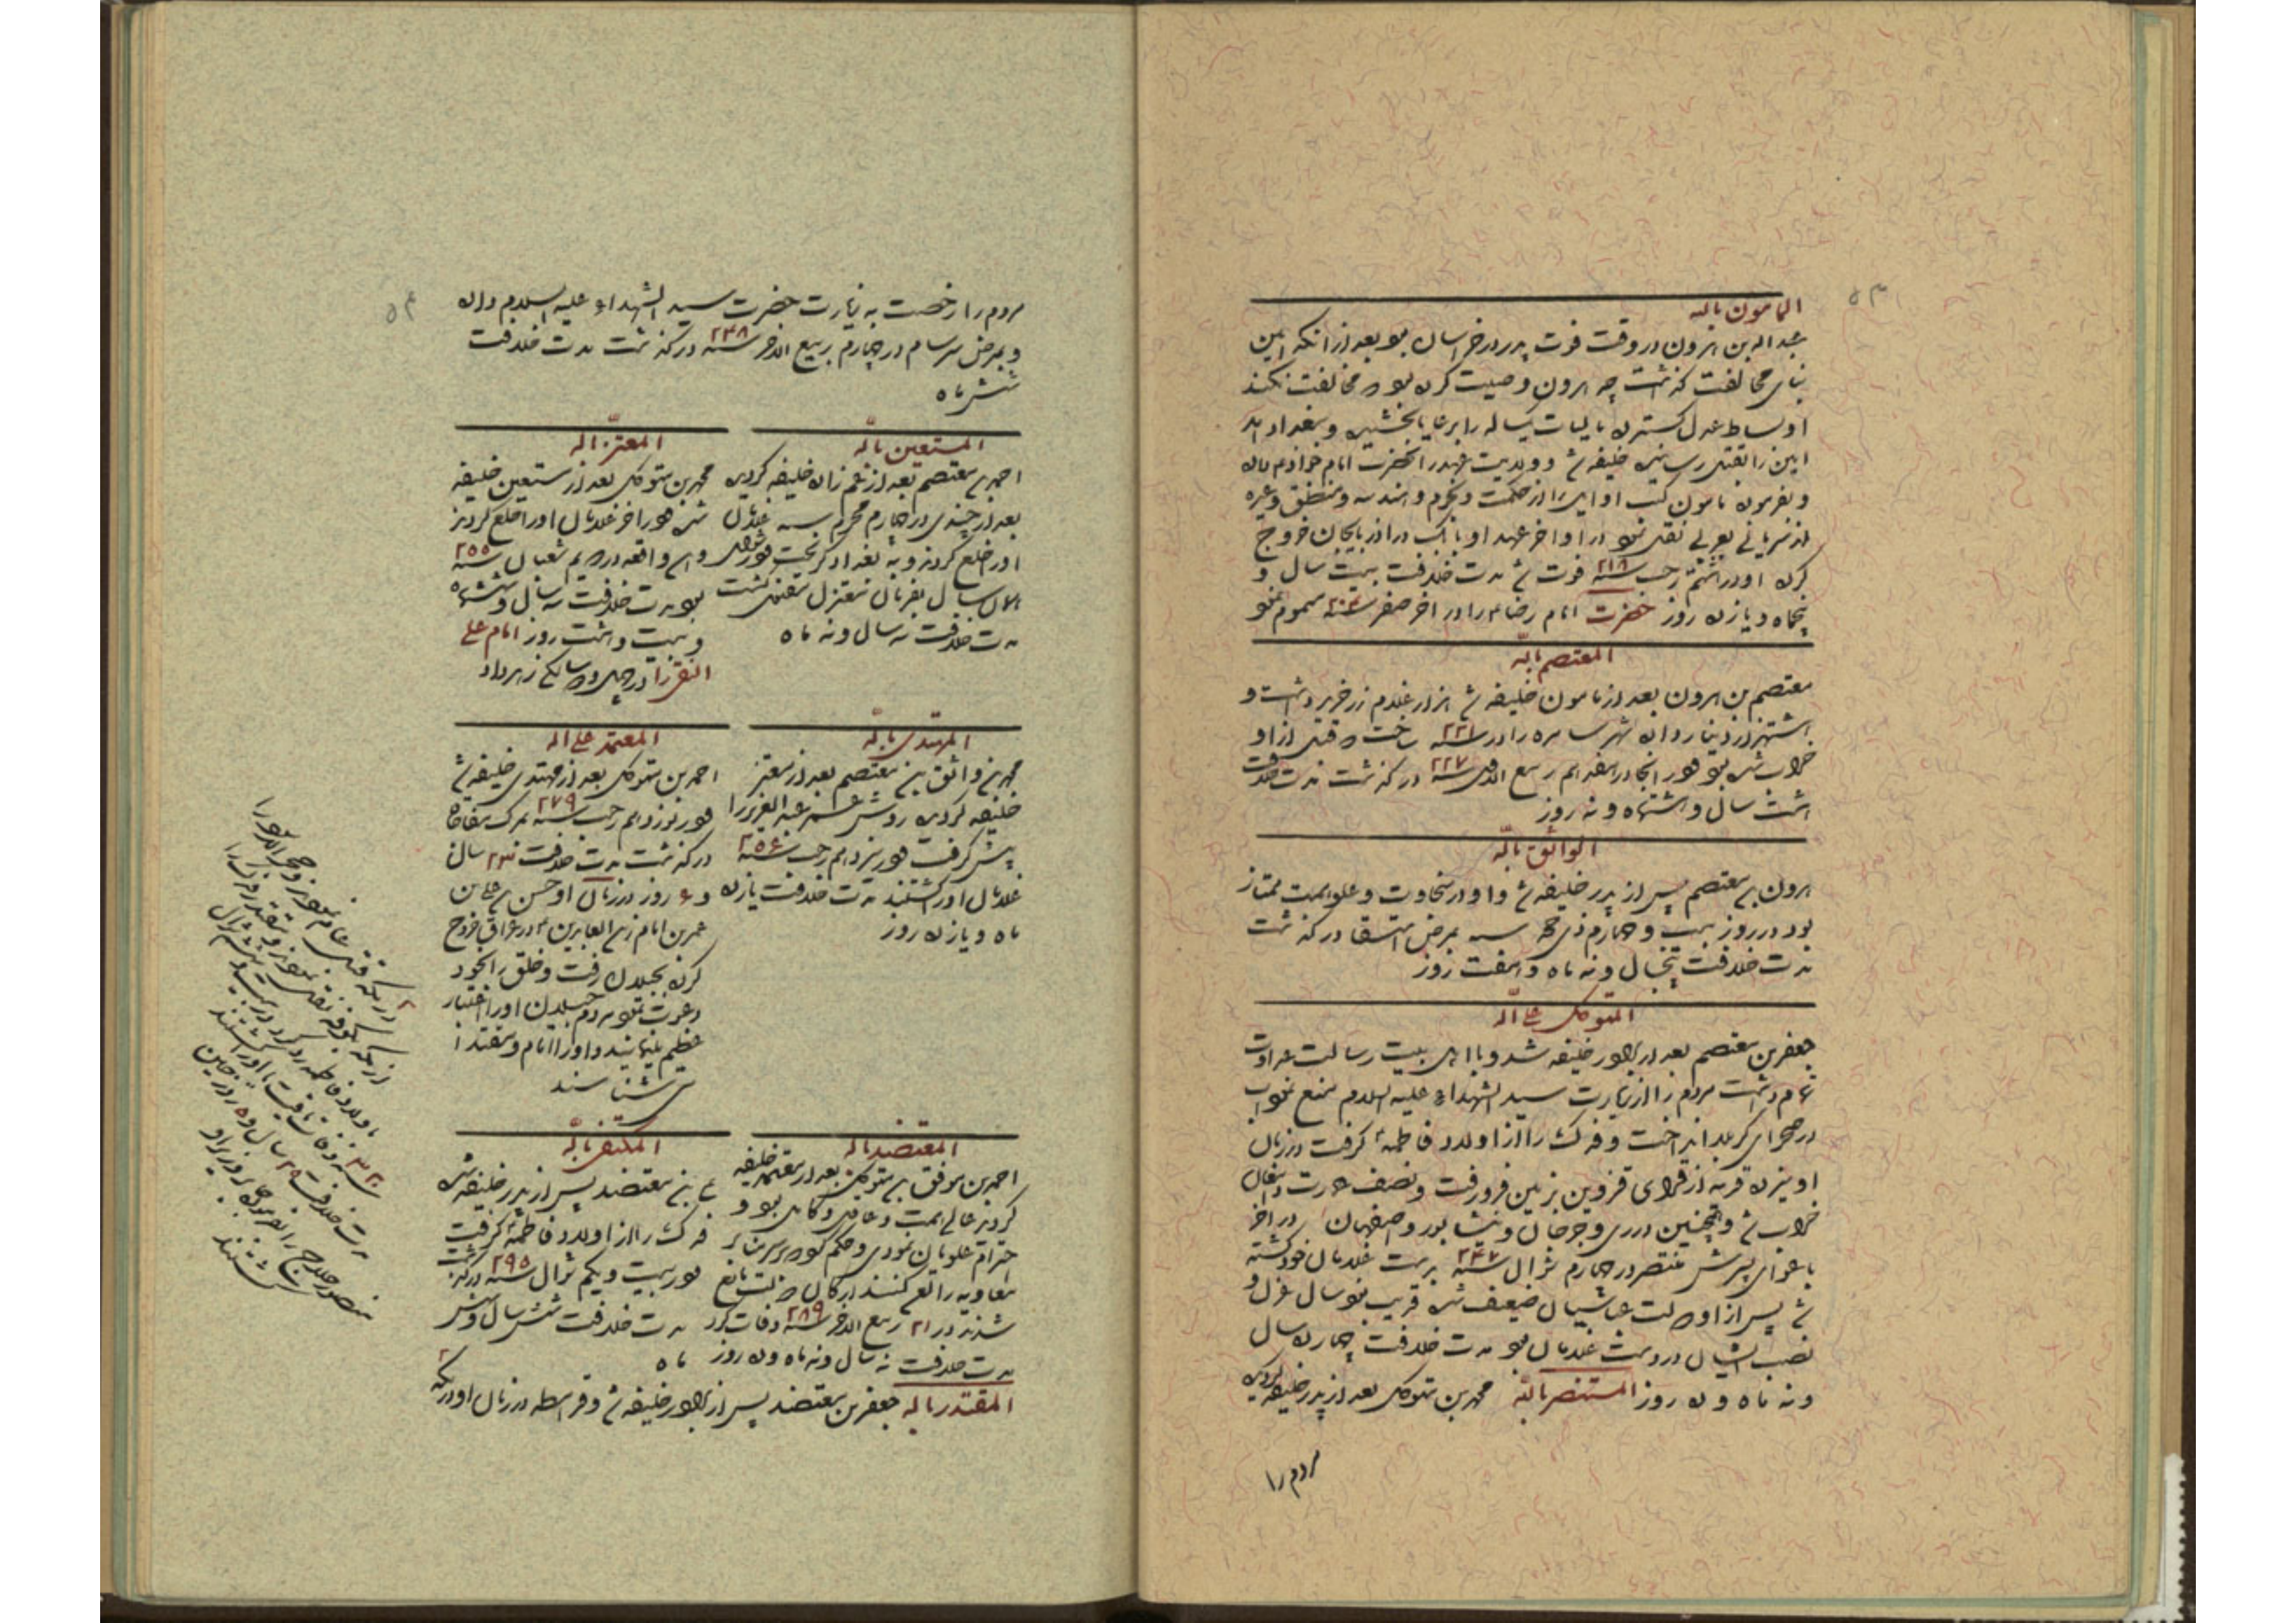 ۵۳
المامون باله
عبداله بن هرون در وقت فوت پدر در خراسان بود بعد از آنکه امین
بنای مخالفت گذاشت چه هرون وصیت کرده بود مخالفت نکنند
او بساط عدل گسترده مالیات یکساله را برعایا بخشیده و ببغداد آمد
امین را بقتل رسانیده خلیفه شد و ولایت عهد را بحضرت امام
و بفرموده مامون کتب اوایل را از حکمت و نجوم و هندسه و منطق و غیره
از سریانی بعربی نقل نمود در اواخر عهد او بابک در آذربایجان خروج
کرد او در هشتم رجب سنه ۲۱۸ فوت شد مدت خلافت بیست سال و
پنجماه و یازده روز حضرت امام رضا را در آخر صفر سنه مسموم نمود
المعتصم باله
معتصم بن هرون بعد از مامون خلیفه شد هزار غلام زرخرید داشت و
هشت هزار دینار داده شهر سامره را در سنه ۲۲۱ ساخت که قبل از او
خراب شده بود و در آنجا در هفدهم ربیع الاول سنه ۲۲۷ درگذشت مدت خلافت
هشت سال و هشتماه و نه روز
الواثق باله
هرون بن معتصم پس از پدر خلیفه شد و او در سخاوت و علو همت ممتاز
بود در روز بیست و چهارم ذی حجه سنه بمرض استسقا درگذشت
مدت خلافت پنجسال و نه ماه و هفت روز
المتوکل علی اله
جعفر بن معتصم بعد از برادر خلیفه شد و با اهل بیت رسالت عداوت
تمام داشت مردم را از زیارت سید الشهداء علیه السلام منع نمود آب
در صحرای کربلا انداخت و فدک را از اولاد فاطمه گرفت در زمان
او سیزده قریه از قرای قزوین بزمین فرو رفت و نصف
خراب شد و همچنین در ری و جرجان و نیشابور و اصفهان در آخر
باغوای پسرش منتصر در چهارم شوال سنه ۲۴۷ بدست غلامان خود کشته
شد پس از او دولت عباسیان ضعیف شده قریب نود سال عزل و
نصب ایشان در دست غلامان بود مدت خلافت چهارده سال
و نه ماه و ده روز المستنصر باله محمد بن متوکل بعد از پدر خلیفه گردیده
مردم را
۵۴
مردم را رخصت به زیارت حضرت سید الشهداء علیه السلام داد
و بمرض سرسام در چهارم ربیع الاخر سنه ۲۴۸ درگذشت مدت خلافت
شش ماه
المستعین باله
احمد بن معتصم بعد از عم زاده خلیفه گردید
بعد از چندی در چهارم محرم سنه غلامان
او را خلع کردند و به بغداد گریخت در شوال
همان سال بفرمان معتز بقتل گشت
مدت خلافت سه سال و نه ماه
المعتز باله
محمد بن متوکل بعد از مستعین خلیفه
شد در آخر غلامان او را خلع کردند
و این واقعه در دویم شعبان سنه ۲۵۵
بود مدت خلافت سه سال و ششماه
و بیست و هشت روز امام علی
النقی را در چهل و دو سالگی زهر داد
المهتدی باله
محمد بن واثق بن معتصم بعد از معتز
خلیفه گردید روش عمر عبدالعزیز را
پیش گرفت در نیزدهم رجب سنه ۲۵۶
غلامان او را کشتند مدت خلافت یازده
ماه و یازده روز
المعتمد علی اله
احمد بن متوکل بعد از مهتدی خلیفه شد
در نوزدهم رجب سنه ۲۷۹ بمرگ مفاجا
درگذشت مدت خلافت ۲۳ سال
و ۶ روز در زمان او حسن بن علی بن
عمر بن امام زین العابدین در عراق خروج
کرده بجیلان رفت و خلق را بخود
دعوت نمود مردم جیلان او را اعتبار
عظیم مینمایند و او را امام و مقتدا
می شناسند
المعتضد باله
احمد بن موفق بن متوکل بعد از معتمد خلیفه
گردید عالی همت و عاقل و کامل بود و
احترام علویان نمودی و حکم کرد بر سر منابر
معاویه را لعن کنند ارکان دولت مانع
شدند در ۲۱ ربیع الاخر سنه ۲۸۹ وفات کرد
مدت خلافت نه سال و نه ماه و ده روز
المکتفی باله
علی بن معتضد پس از پدر خلیفه شد
فدک را از اولاد فاطمه گرفت
در بیست و یکم شوال سنه ۲۹۵ درگذشت
مدت خلافت شش سال و شش
ماه
المقتدر باله جعفر بن معتضد پس از برادر خلیفه شد و قرامطه در زمان او در مکه
در مکه قتل عام نمودند و حجر الاسود را
از مکه بکوفه نقل نمودند و مقتدر فدک را
باولاد فاطمه رد کرد در بیست و هفتم شوال
سنه ۳۲۰ وفات یافت او را کشتند
مدت خلافت ۲۵ سال
منصور حلاج را بفرموده حامد وزیر او
کشتند